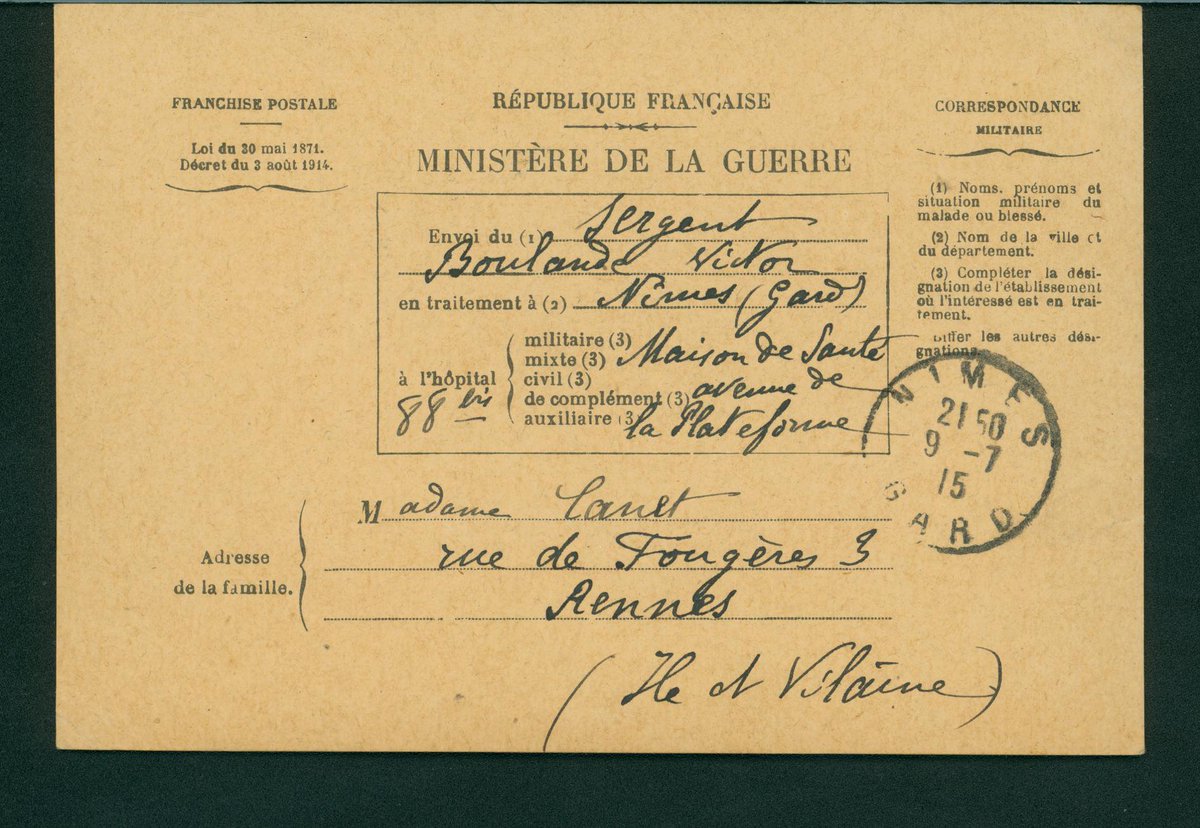 FRANCHISE POSTALE
Loi du 30 mai 1871.
Décret du 3 août 1914.
RÉPUBLIQUE FRANÇAISE
MINISTÈRE DE LA GUERRE
CORRESPONDANCE
MILITAIRE
(1) Noms, prénoms et
situation militaire du
malade ou blessé.
(2) Nom de la ville et
du département.
(3) Compléter la dési-
gnation de l'établissement
où l'intéressé est en trai-
tement.
Biffer les autres dési-
gnations.
Envoi du (1) Sergent
Boulande Victor
en traitement à (2) Nîmes (Gard)
à l'hôpital
88 bis
militaire (3)
mixte (3)
civil (3)
de complément (3)
auxiliaire (3
Maison de Santé
avenue de
la Plateforme
NIMES
21 50
9 -7
15
GARD
Madame Canet
rue de Fougères 3
Rennes
(Ile et Vilaine)
Adresse
de la famille.